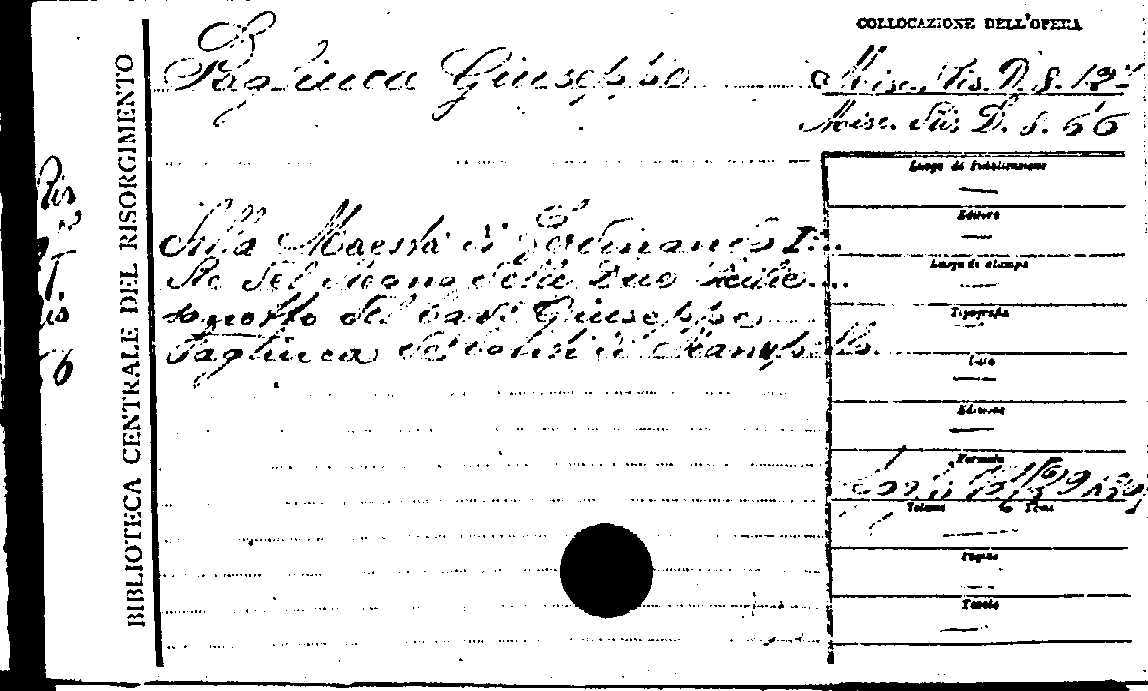 COLLOCAZIONE DELL'OPERA
Pagliuca Giuseppe
Misc. Ris. D. 8. 12
Misc. Ris D. 8. 66
BIBLIOTECA CENTRALE DEL RISORGIMENTO
Luogo di Pubblicazione
Editore
Luogo di stampa
Tipografia
Data
Edizione
Formato
Volume o Tomo
Pagine
Tavole
Alla Maestà di Ferdinando I...
Re del Regno delle Due Sicilie...
sonetto del Cav. Giuseppe
Pagliuca dei Conti di Manupello.
Ris
66